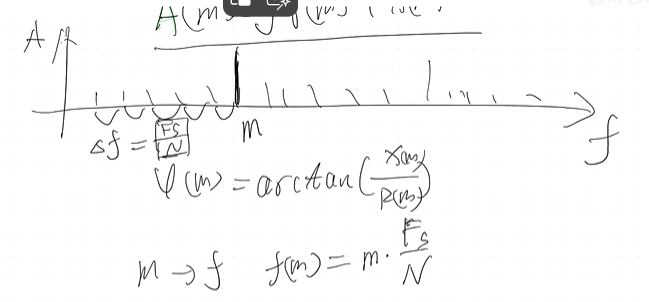 A(m)
A
f
m
Δf = Fs/N
φ(m) = arctan(X(m)/R(m))
m → f f(m) = m · Fs/N